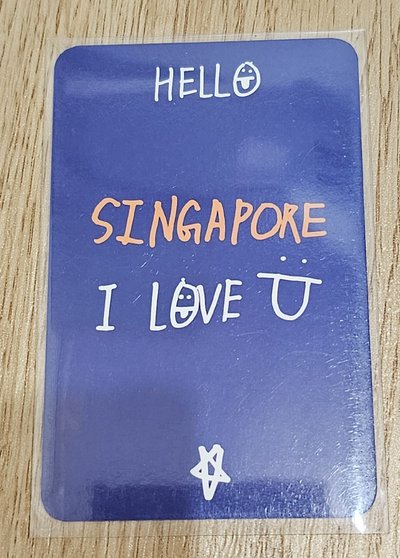 HELLO
SINGAPORE
I LOVE Ü